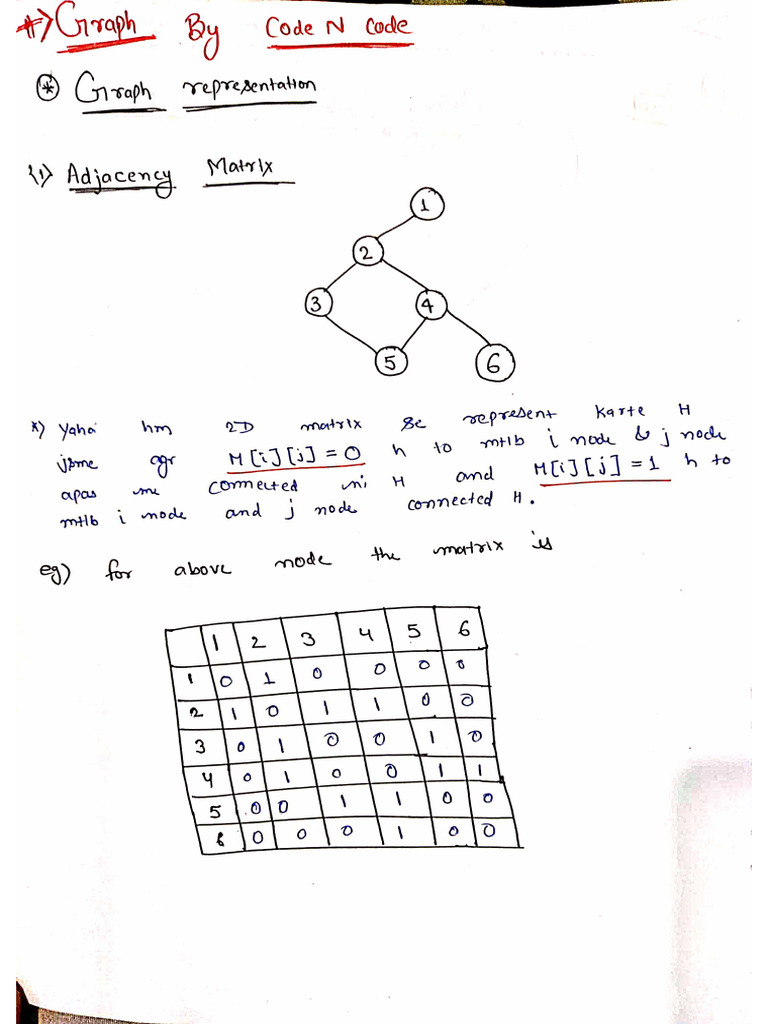 #> Graph By Code N Code
* Graph representation
{1> Adjacency Matrix
1
2
3 4
5 6
*) Yaha hm 2D matrix se represent karte H
jsme agr M[i][j] = 0 h to mtlb i node & j node
apas me connected ni H and M[i][j] = 1 h to
mtlb i node and j node connected H.
eg) for above node the matrix is
1 2 3 4 5 6
1 0 1 0 0 0 0
2 1 0 1 1 0 0
3 0 1 0 0 1 0
4 0 1 0 0 1 1
5 0 0 1 1 0 0
6 0 0 0 1 0 0